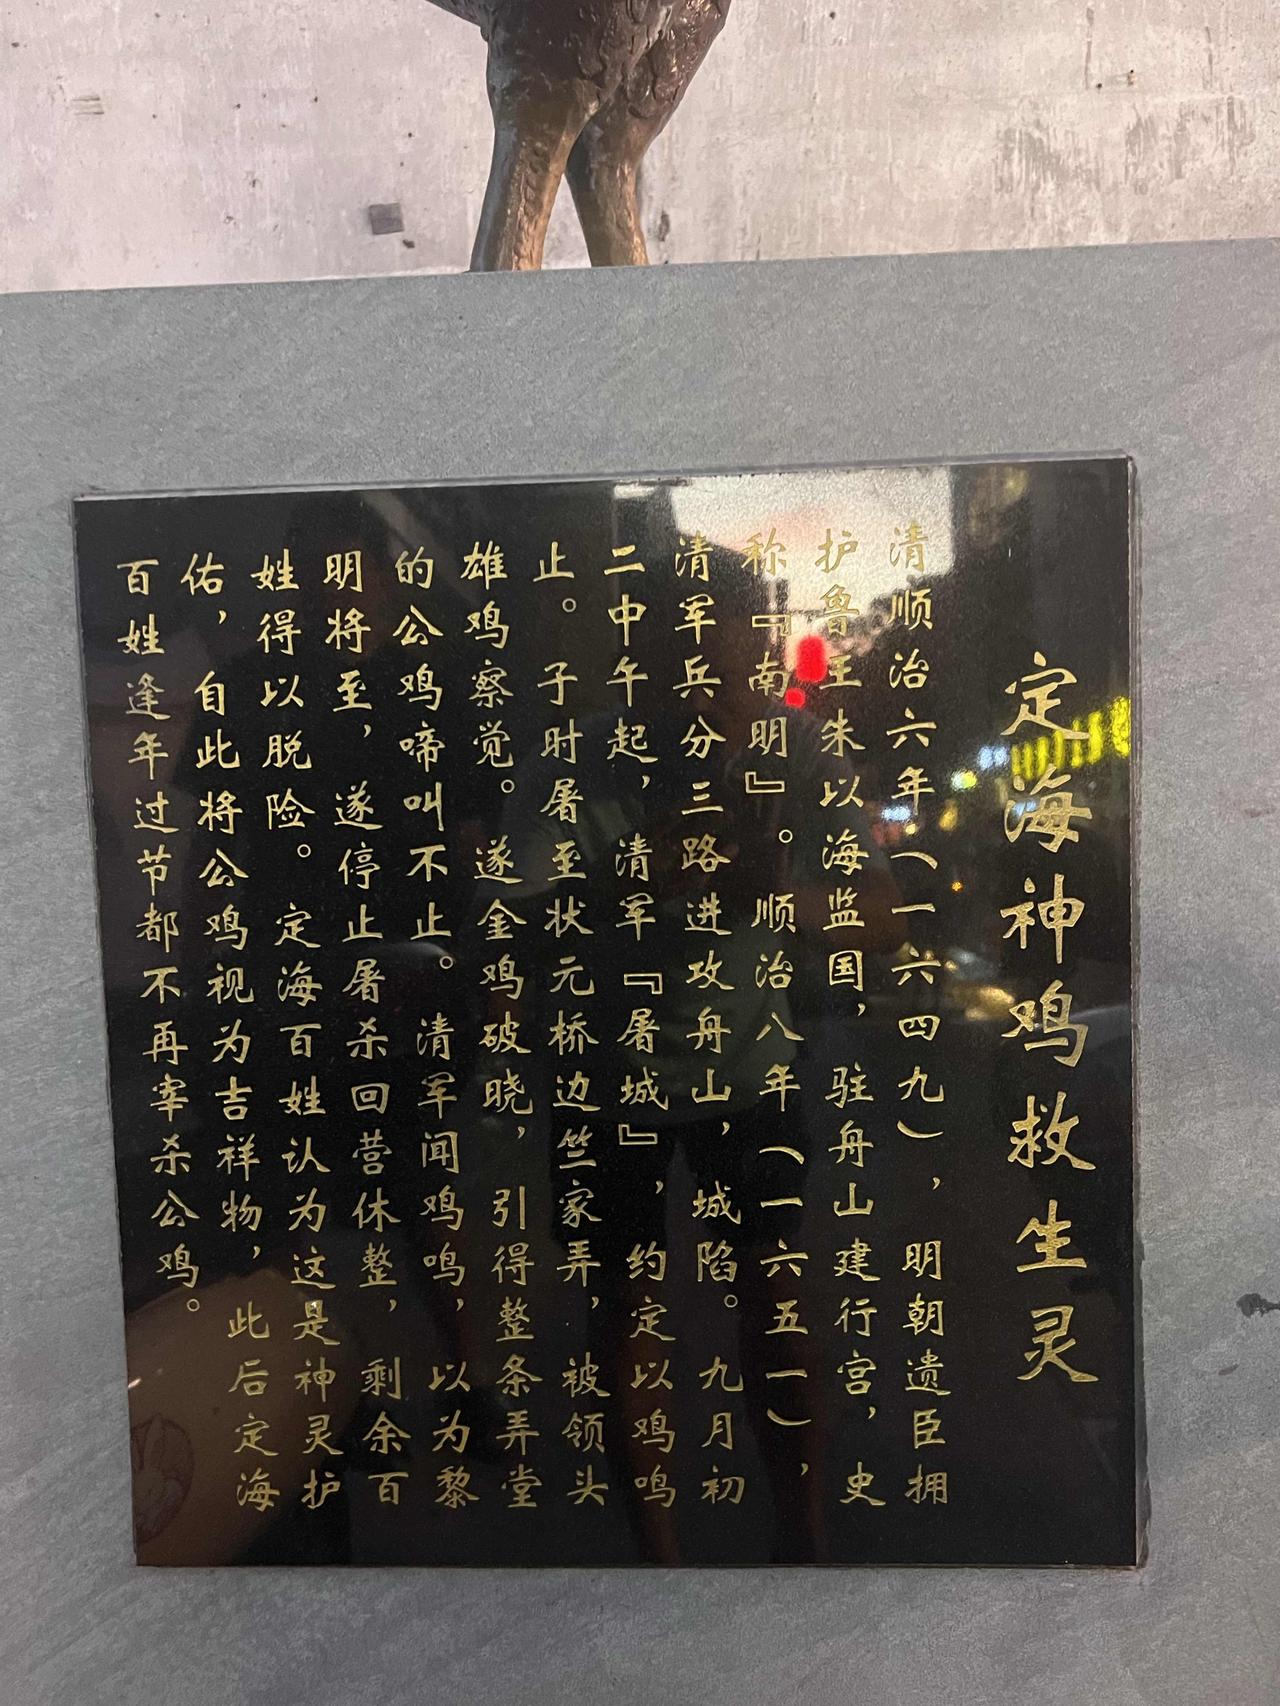 定海神鸡救生灵
清顺治六年（一六四九），明朝遗臣拥
护鲁王朱以海监国，驻舟山建行宫，史
称『南明』。顺治八年（一六五一），
清军兵分三路进攻舟山，城陷。九月初
二中午起，清军『屠城』，约定以鸡鸣
止。子时屠至状元桥边竺家弄，被领头
雄鸡察觉。遂金鸡破晓，引得整条弄堂
的公鸡啼叫不止。清军闻鸡鸣，以为黎
明将至，遂停止屠杀回营休整，剩余百
姓得以脱险。定海百姓认为这是神灵护
佑，自此将公鸡视为吉祥物，此后定海
百姓逢年过节都不再宰杀公鸡。